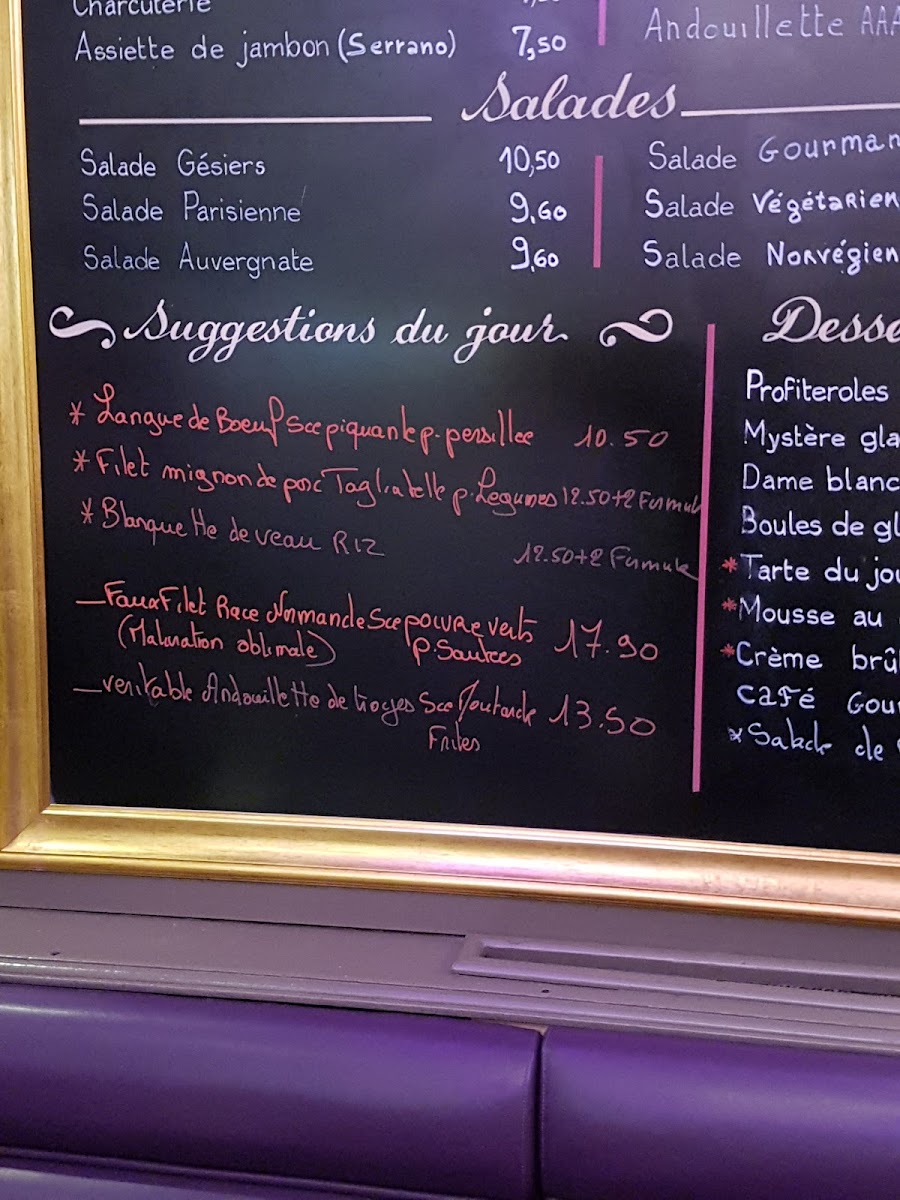 Charcuterie
Assiette de jambon (Serrano) 7,50
Andouillette AAA
Salades
Salade Gésiers 10,50
Salade Parisienne 9,60
Salade Auvergnate 9,60
Salade Gourman
Salade Végétarien
Salade Norvégien
Suggestions du jour
* Langue de Boeuf Sce piquante p. persillee 10.50
* Filet mignon de porc Tagliatelle p. Legumes 12.50+2 Formule
* Blanquette de veau Riz 12.50+2 Formule
_ Faux Filet Race Normande Sce poivre verts 17.90
(Maturation obtimale) p. Sautees
_ veritable Andouillette de troyes Sce Moutarde 13.50
Frites
Desse
Profiteroles
Mystère gla
Dame blanc
Boules de gl
*Tarte du jou
*Mousse au
*Crème brûl
Café Gour
*Salade de